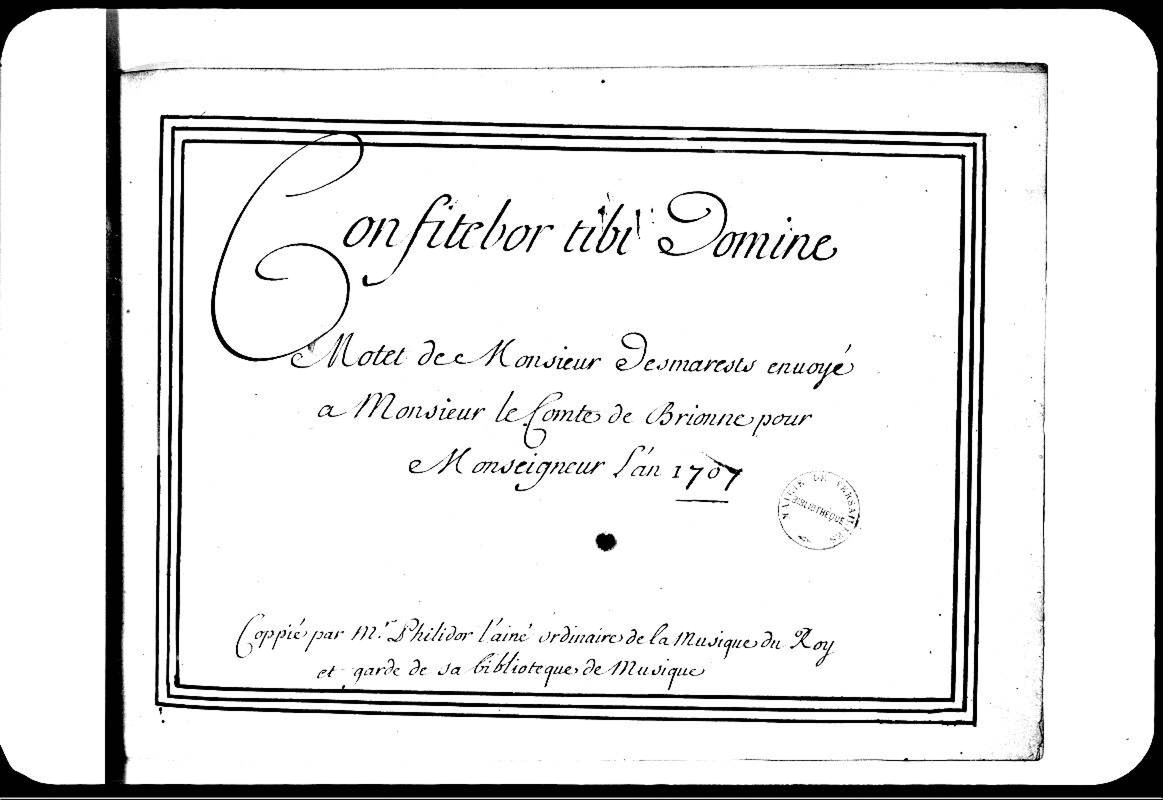 Confitebor tibi Domine
Motet de Monsieur Desmarests enuoyé
a Monsieur le Comte de Brionne pour
Monseigneur l'an 1707
MAIRIE DE VERSAILLES
BIBLIOTHEQUE
Coppié par Mr. Philidor l'ainé ordinaire de la Musique du Roy
et garde de sa biblioteque de Musique